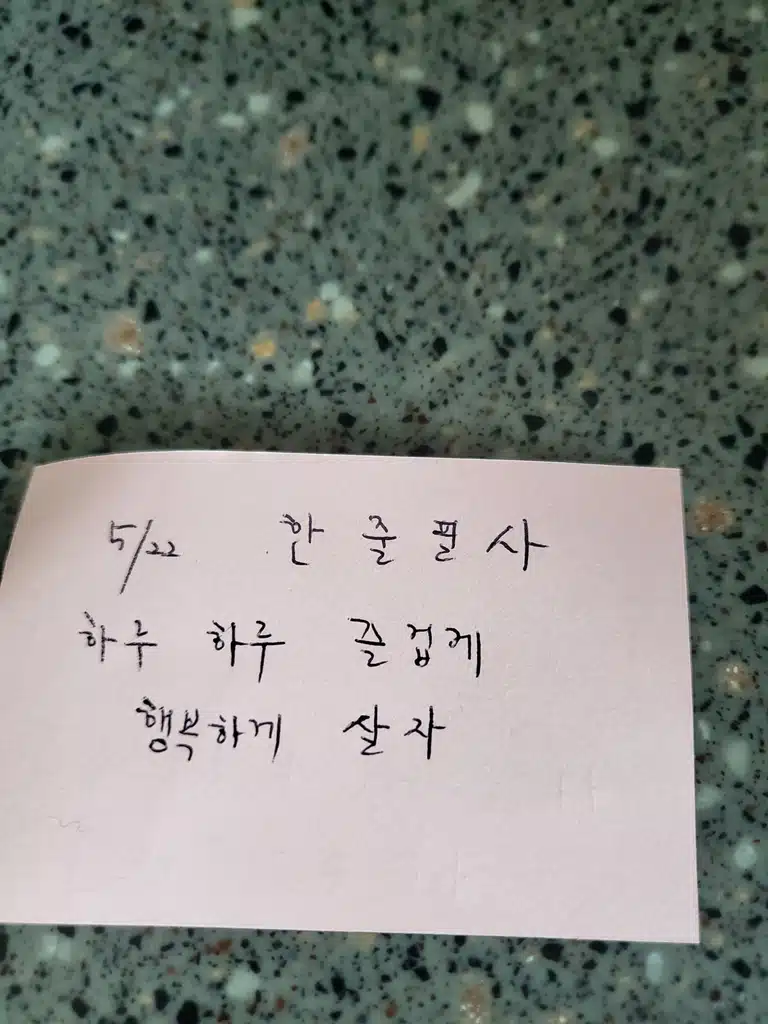 5/22 한 줄 필사
하루 하루 즐겁게
행복하게 살자